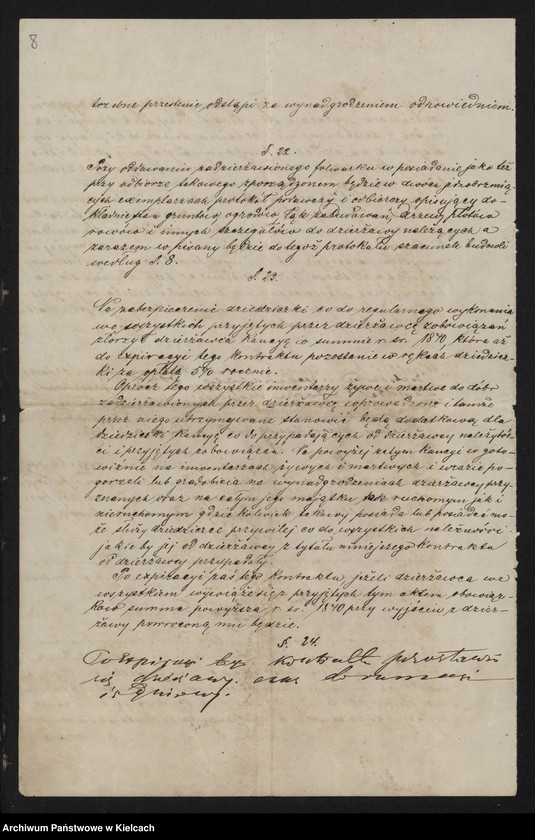 8
trzebne przestrzenie odstąpi za wynadgrodzeniem odpowiedniem.
§. 22.
Przy oddawaniu zadzierżawionego folwarku w posiadanie jako też
przy odbiorze takowego sporządzonem będzie w dwóch jednobrzmią-
cych exemplarzach protokół podawczy i odbiorczy opisujący do-
kładnie stan gruntów ogrodów, łąk zabudowań, drzew, płotów
rowów i innych szczegółów do dzierżawy należących a
zarazem wpisany będzie do tegoż protokółu szacunek budowli
według §. 8.
§. 23.
Na zabezpieczenie dziedziczki co do regularnego wykonania
we wszystkich przyjętych przez dzierżawcę zobowiązań
złożył dzierżawca kaucyę w summie r. sr. 1840, która aż
do expiracyi tego kontraktu pozostanie w rękach dziedzicz-
ki za opłatą 5% rocznie.
Oprócz tego wszystkie inwentarze żywe i martwe do dóbr
zadzierżawionych przez dzierżawcę wprowadzone i tamże
przez niego utrzymywane stanowić będą dodatkową dla
dziedziczki kaucyę co do przypadających od dzierżawcy należytoś-
ci i przyjętych zobowiązań. Na powyżej zatym kaucyi w goto-
wiźnie na inwentarzach żywych i martwych i w razie po-
gorzeli lub gradobicia na wynadgrodzeniach dzierżawcy przy-
znanych oraz na całym jego majątku tak ruchomym jak i
nieruchomym gdziekolwiek takowy posiada lub posiadać mo-
że służy dziedziczce przywilej co do wszystkich należności
jakie by jej od dzierżawcy z tytułu niniejszego kontraktu
od dzierżawcy przypadały.
Po expiracyi zaś tego kontraktu, jeżeli dzierżawca we
wszystkiem wywiąże się z przyjętych tym aktem obowiąz-
ków summa powyższa r. sr. 1840 przy wyjściu z dzier-
żawy powróconą mu będzie.
§. 24.
kontrakt
oraz
Archiwum Państwowe w Kielcach